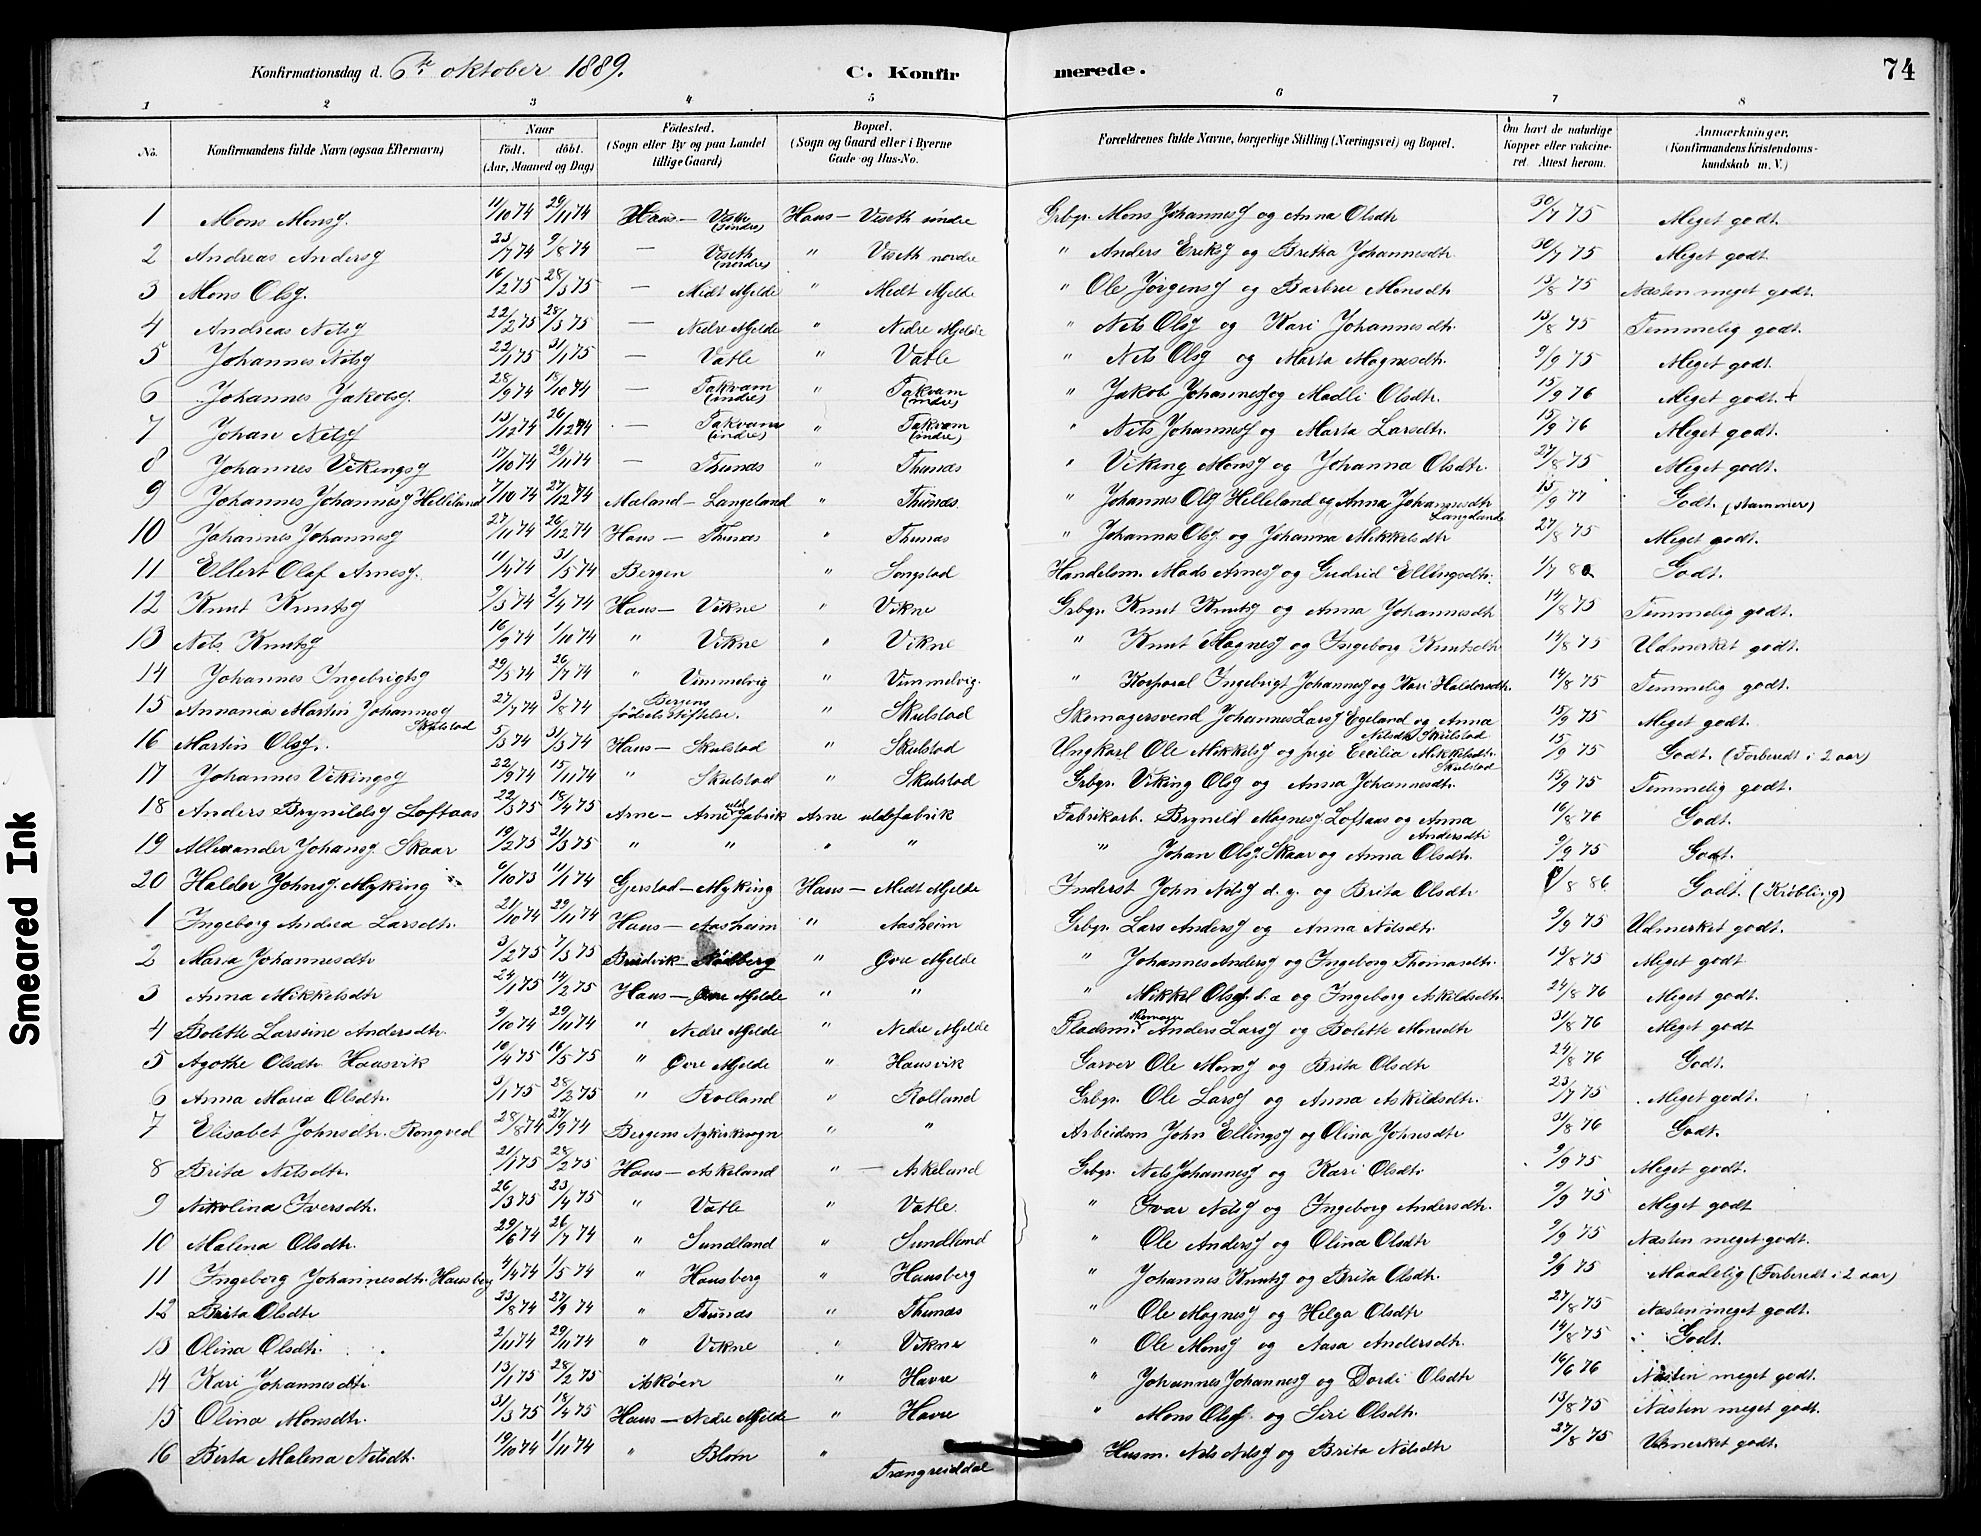 Smeared Ink
Konfirmationsdag d. 6te oktober 1889.
C. Konfir merede.
74
1 2 3 4 5 6 7 8
No.
Konfirmandens fulde Navn (ogsaa Efternavn)
Naar
födt. döbt.
(Aar, Maaned og Dag)
Födested.
(Sogn eller By og paa Landet
tillige Gaard)
Bopæl.
(Sogn og Gaard eller i Byerne
Gade og Hus-No.
Forældrenes fulde Navne, borgerlige Stilling (Næringsvei) og Bopæl.
Om havt de naturlige
Kopper eller vakcine-
ret. Attest herom.
Anmærkninger.
(Konfirmandens Kristendoms-
kundskab m. V.)
1 Mons Monsg. 11/10 74 29/11 74 Haus — (söndre) Haus — Viseth söndre Grbgr. Mons Johannesg og Anna Olsdtr 30/7 75 Meget godt.
2 Andreas Andersg 23/7 74 9/8 74 — Viseth (nordre) " Viseth nordre " Anders Eriksg og Britha Johannesdtr 30/7 75 Meget godt.
3 Mons Olsg. 16/2 75 28/3 75 — Midt Mjelde " Midt Mjelde " Ole Jörgensg og Barbru Monsdtr 13/8 75 Næsten meget godt.
4 Andreas Nilsg 22/2 75 28/3 75 — Nedre Mjelde " Nedre Mjelde " Nils Olsg og Kari Johannesdtr. 13/8 75 Temmelig godt.
5 Johannes Nilsg 22/1 75 31/1 75 — Vatle " Vatle " Nils Olsg og Marta Magnesdtr. 9/9 75 Meget godt.
6 Johannes Jakobsg. 28/9 74 18/10 74 — Takvam (indre) " Takvam (indre) " Jakob Johannesg og Madli Olsdtr. 15/9 76 Meget godt. +
7 Johan Nilsg 13/12 74 26/12 74 — Takvam (indre) " Takvam (indre) " Nils Johannesg og Marta Larsdtr. 15/9 76 Meget godt.
8 Johannes Vikingsg 17/10 74 29/11 74 — Thunæs " Thunæs " Viking Monsg og Johanna Olsdtr. 27/8 75 Meget godt.
9 Johannes Johannesg Helleland 7/10 74 27/12 74 Maland — Langeland " Thunæs " Johannes Olsg Helleland og Anna Johannesdtr Langeland 15/9 77 Godt. (stammer)
10 Johannes Johannesg 27/11 74 26/12 74 Haus — Thunæs " Thunæs " Johannes Olsg og Johanna Mikkelsdtr 27/8 75 Meget godt.
11 Ellert Olaf Arnesg. 11/4 74 31/5 74 Bergen " Songstad Handelsm. Mads Arnesg og Gudrid Ellingsdtr. 1/7 80 Godt.
12 Knut Knutsg 9/3 74 2/4 74 Haus — Vikne " Vikne Grbgr. Knut Knutsg og Anna Johannesdtr 14/8 75 Temmelig godt.
13 Nils Knutsg 16/9 74 1/10 74 " Vikne " Vikne " Knut Magnesg og Ingeborg Knutsdtr 14/8 75 Udmerket godt.
14 Johannes Ingebrigtsg 29/5 74 26/7 74 " Vimmelvig " Vimmelvig. " Korporal Ingebrigt Johannesg og Kari Haldorsdtr. 14/8 75 Temmelig godt.
15 Annania Martin Johannesg Skulstad 27/7 74 3/8 74 Bergens födselsstiftelse. " Skulstad Skomagersvend Johannes Larsg Egeland og Anna Nilsdtr Skulstad 15/9 75 Meget godt.
16 Martin Olsg. 5/3 74 31/3 74 Haus — Skulstad " Skulstad Ungkarl Ole Mikkelsg og pige Cecilia Mikkelsdtr. Skulstad 15/9 75 Godt. (Forberedt i 2 aar)
17 Johannes Vikingsg 22/9 74 15/11 74 " Skulstad " Skulstad Grbgr. Viking Olsg og Anna Johannesdtr. 15/9 75 Temmelig godt.
18 Anders Brynildsg Loftaas 22/3 75 18/4 75 Arne — Arne uldfabrik Arne uldefabrik Fabrikarb. Brynild Magnesg Loftaas og Anna Andersdtr 16/8 76 Godt.
19 Allexander Johansg. Skaar 19/2 75 21/3 75 " " " " " Johan Olsg. Skaar og Anna Olsdtr. 9/2 75 Godt.
20 Haldor Johnsg. Myking 6/10 73 11/1 74 Gjerstad — Myking Haus — Midt Mjelde Inderst John Nilsg d. y. og Brita Olsdtr /8 86 Godt. (Kröbling)
1 Ingeborg Andrea Larsdtr. 21/10 74 29/11 74 Haus — Aasheim " Aasheim Grbgr. Lars Andersg og Anna Nilsdtr. 9/9 75 Udmerket godt.
2 Maria Johannesdtr 3/2 75 7/3 75 Bruvik — " Övre Mjelde " Johannes Andersg og Ingeborg Thomasdtr. 13/8 75 Meget godt
3 Anna Mikkelsdtr 24/1 75 14/2 75 Haus — Övre Mjelde " " " Mikkel Olsg. d. æ og Ingeborg Askildsdtr. 24/8 76 Meget godt.
4 Bolette Larsine Andersdtr. 9/10 74 29/11 74 " Nedre Mjelde " Nedre Mjelde Pladsm. Anders Larsg og Bolette Monsdtr 31/8 76 Meget godt
5 Agothe Olsdtr. Hausvik 10/4 75 16/5 75 " Övre Mjelde " Hausvik Garver Ole Monsg og Brita Olsdtr 24/8 76 Godt.
6 Anna Maria Olsdtr. 3/1 75 28/2 75 " Rolland " Rolland Grbgr. Ole Larsg og Anna Askildsdtr. 23/7 75 Meget godt.
7 Elisabet Johnsdtr. Rongved 28/8 74 27/9 74 Bergens Nykirkesogn " " Arbeidsm John Ellingsg og Olina Johnsdtr 31/8 76 Godt.
8 Brita Nilsdtr. 21/1 75 28/2 75 Haus — Askeland " — Askeland Grbgr. Nils Johannesg og Kari Olsdtr. 9/9 75 Meget godt.
9 Nikolina Iversdtr. 26/3 75 23/4 75 " Vatle " Vatle. " Ivar Nilsg og Ingeborg Andersdtr. 9/9 75 Meget godt
10 Malena Olsdtr. 29/6 74 26/7 74 " Sundland " Sundland " Ole Andersg og Olina Olsdtr. 9/9 75 Næsten meget godt.
11 Ingeborg Johannesdtr. Hausberg 4/4 74 1/5 74 " Hausberg " Hausberg " Johannes Knutsg og Brita Olsdtr. 9/9 75 Maadelig (Forberedt i 2 aar)
12 Brita Olsdtr 23/8 74 27/9 74 " Thunæs " Thunæs " Ole Magnesg og Helga Olsdtr 27/8 75 Næsten meget godt.
13 Olina Olsdtr. 2/11 74 29/11 74 " Vikne " Vikne " Ole Monsg og Aasa Andersdtr. 14/8 75 Godt.
14 Kari Johannesdtr. 13/1 75 28/2 75 Asköen " Havre " Johannes Johannesg og Dordi Olsdtr 16/6 76 Næsten meget godt.
15 Olina Monsdtr. 31/3 75 18/4 75 Haus — Nedre Mjelde " Havre " Mons Olsg. og Siri Olsdtr. 13/8 75 Næsten meget godt.
16 Berta Malena Nilsdtr. 19/10 74 1/11 74 " Blom " Trangreiddal Husm. Nils Nilsg og Brita Nilsdtr 27/8 75 Udmerket godt.